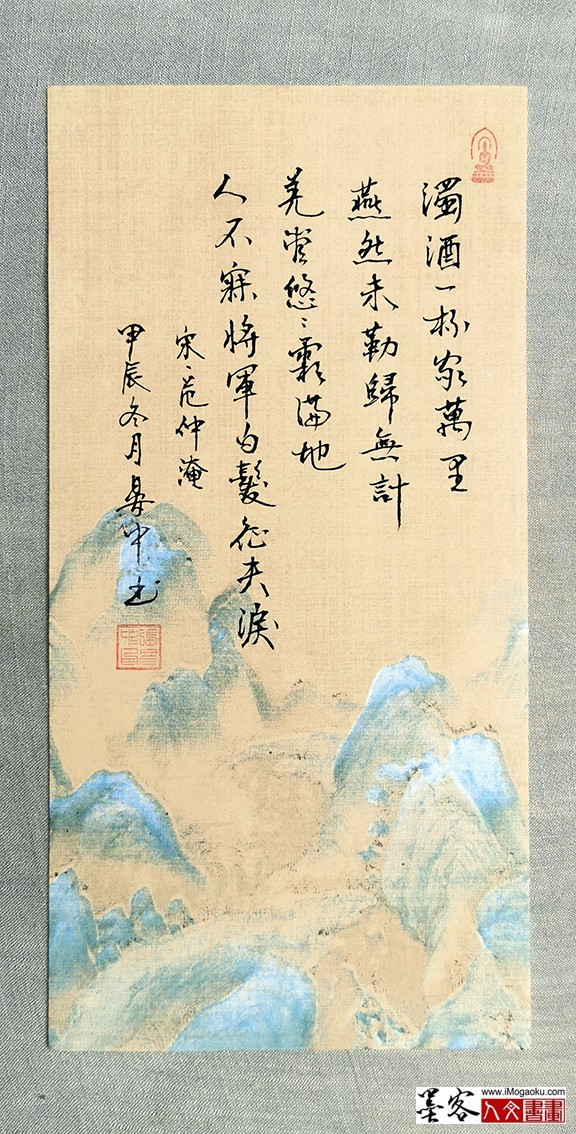 濁酒一杯家萬里
燕然未勒歸無計
羌管悠〻霜滿地
人不寐將軍白髮征夫淚
宋、范仲淹
甲辰冬月中书
www.iMogaoku.com
墨客人文書畫